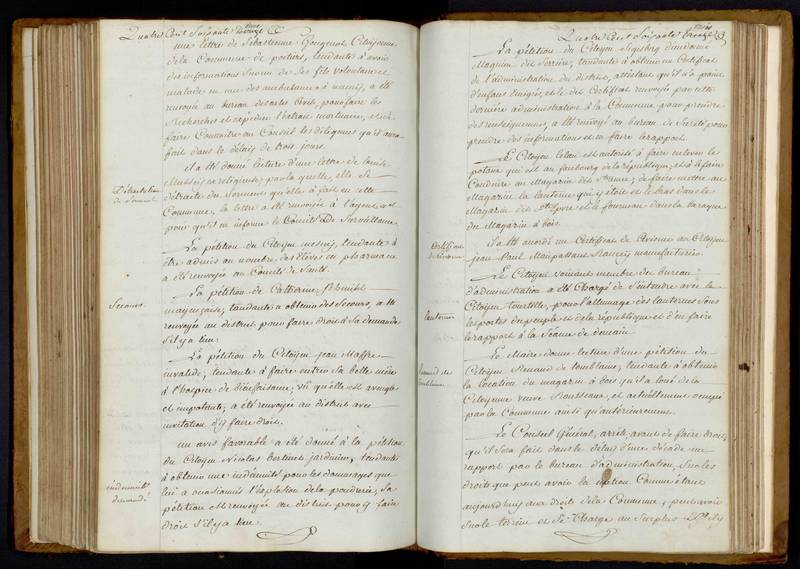 Quatre Cent Soixante Douze
une lettre de Sébastienne Gougenot, Citoyenne
de la Commune de poitiers, tendante à avoir
des informations Sur un de Ses fils volontaires
malade en une des ambulances à nancy, a été
renvoyée au bureau des actes Civils, pour faire les
Recherches et expedier l'extrait mortuaire, et en
faire Connoitre au Conseil les diligences qu'il aura
fait dans le délais de trois jours.
il a été donné lecture d'une lettre de
Religieuse, par laquelle, elle Se
Rétracte du Serment qu'elle a fait en cette
Commune, la lettre a été renvoyée à l'agent nal
pour qu'il en informe le Comité De Surveillance
La pétition du Citoyen mesny, tendante à
être admis au nombre des Elèves en pharmacie
a été renvoyée au Comité de Santé.
Secours
La pétition de Catherine Schmitt
mayençaise, tendante à obtenir des Secours, a été
renvoyée au district pour faire droit à Sa demande
S'il y a lieu.
La pétition du Citoyen jean Maffre
invalide, tendante à faire entrer Sa belle mère
à l'hospice de Bienfaisance, vû qu'elle est aveugle
et impotente, a été renvoyée au district avec
invitation d'y faire droit.
un avis favorable a été donné à la pétition
du Citoyen Nicolas Bertinet jardinier, tendante
à obtenir une indemnité pour les dommages que
indemnité
demandé
lui a occasionnés l'explosion de la poudrerie, Sa
pétition est renvoyée au district pour y faire
droit S'il y a lieu.
Quatre Cent Soixante Treize
La pétition du Citoyen Sigisberg
Maguin dit Serrière, tendante à obtenir un Certificat
de l'administration du district, attestant qu'il n'a point
d'enfans Emigrés, et le dit Certificat renvoyée par cette
dernière administration à la Commune pour prendre
des renseignemens, a été renvoyé au bureau de Sureté pour
prendre des informations et en faire le rapport.
Le Citoyen est autorisé à faire enlever le
poteau qui est au faubourg de la république, et à le faire
Conduire au Magazin dit; de faire mettre au
Magazin la lanterne qui y étoit et le bras dans le
Magazin dit St Epvre et le fourneau dans la baraque
du Magazin à bois.
Certificat
de Civisme
il a été accordé un Certificat de Civisme au Citoyen
jean Paul Manufacturier.
Le Citoyen membre du bureau
d'administration a été Chargé de S'entendre avec le
Citoyen tourtille, pour l'allumage des lanternes Sous
lanternes
les portes du peuple et de la république et d'en faire
le rapport à la Séance de demain.
Renaud de
Tomblaine
Le Maire donne lecture d'une pétition du
Citoyen Renaud de tomblaine, tendante à obtenir
la location du magazin à bois qu'il a loué de la
Citoyenne veuve Rousseaux, et actuellement occupé
par la Commune ainsi qu'antérieurement.
Le Conseil Général, arrête, avant de faire droit,
qu'il Sera fait dans le délai d'une décade un
rapport par le bureau d'administration, Sur les
droits que peut avoir la nation Comme étant
aujourd'hui aux droits de la Commune, peut avoir
Sur le terrein et Se Charge au Surplus